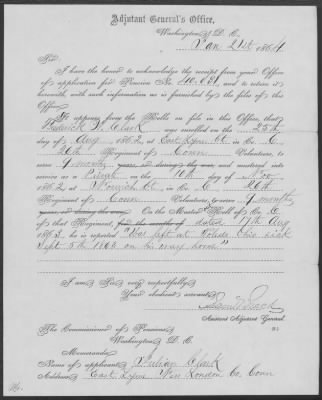 Adjutant General's Office,
Washington, D. C.
Jan 21st 1864
Sir:
I have the honor to acknowledge the receipt from your Office
of application for Pension No. 40.681, and to return it
herewith, with such information as is furnished by the files of this
Office.
It appears from the Rolls on file in this Office, that
Frederick W. Clark was enrolled on the 25th
day of Aug, 1862, at East Lyme Ct. in Co. C,
26th Regiment of Conn Volunteers, to
serve 9 months years, or during the war, and mustered into
service as a Private on the 10th day of Nov
1862, at Norwich Ct. in Co. C 26th
Regiment of Conn Volunteers, to serve 9 months
years, or during the war. On the Muster Roll of Co. C
of that Regiment, for the month of dated 17th Aug
1863, he is reported "Was left at Toledo Ohio sick
Sept 5th 1863 on his way home"
I am, Sir, very respectfully,
Your obedient servant,
Assistant Adjutant General.
The Commissioner of Pensions,
Washington, D. C.
Memoranda:
Name of applicant, Clark
Address, East Lyme New London Co. Conn